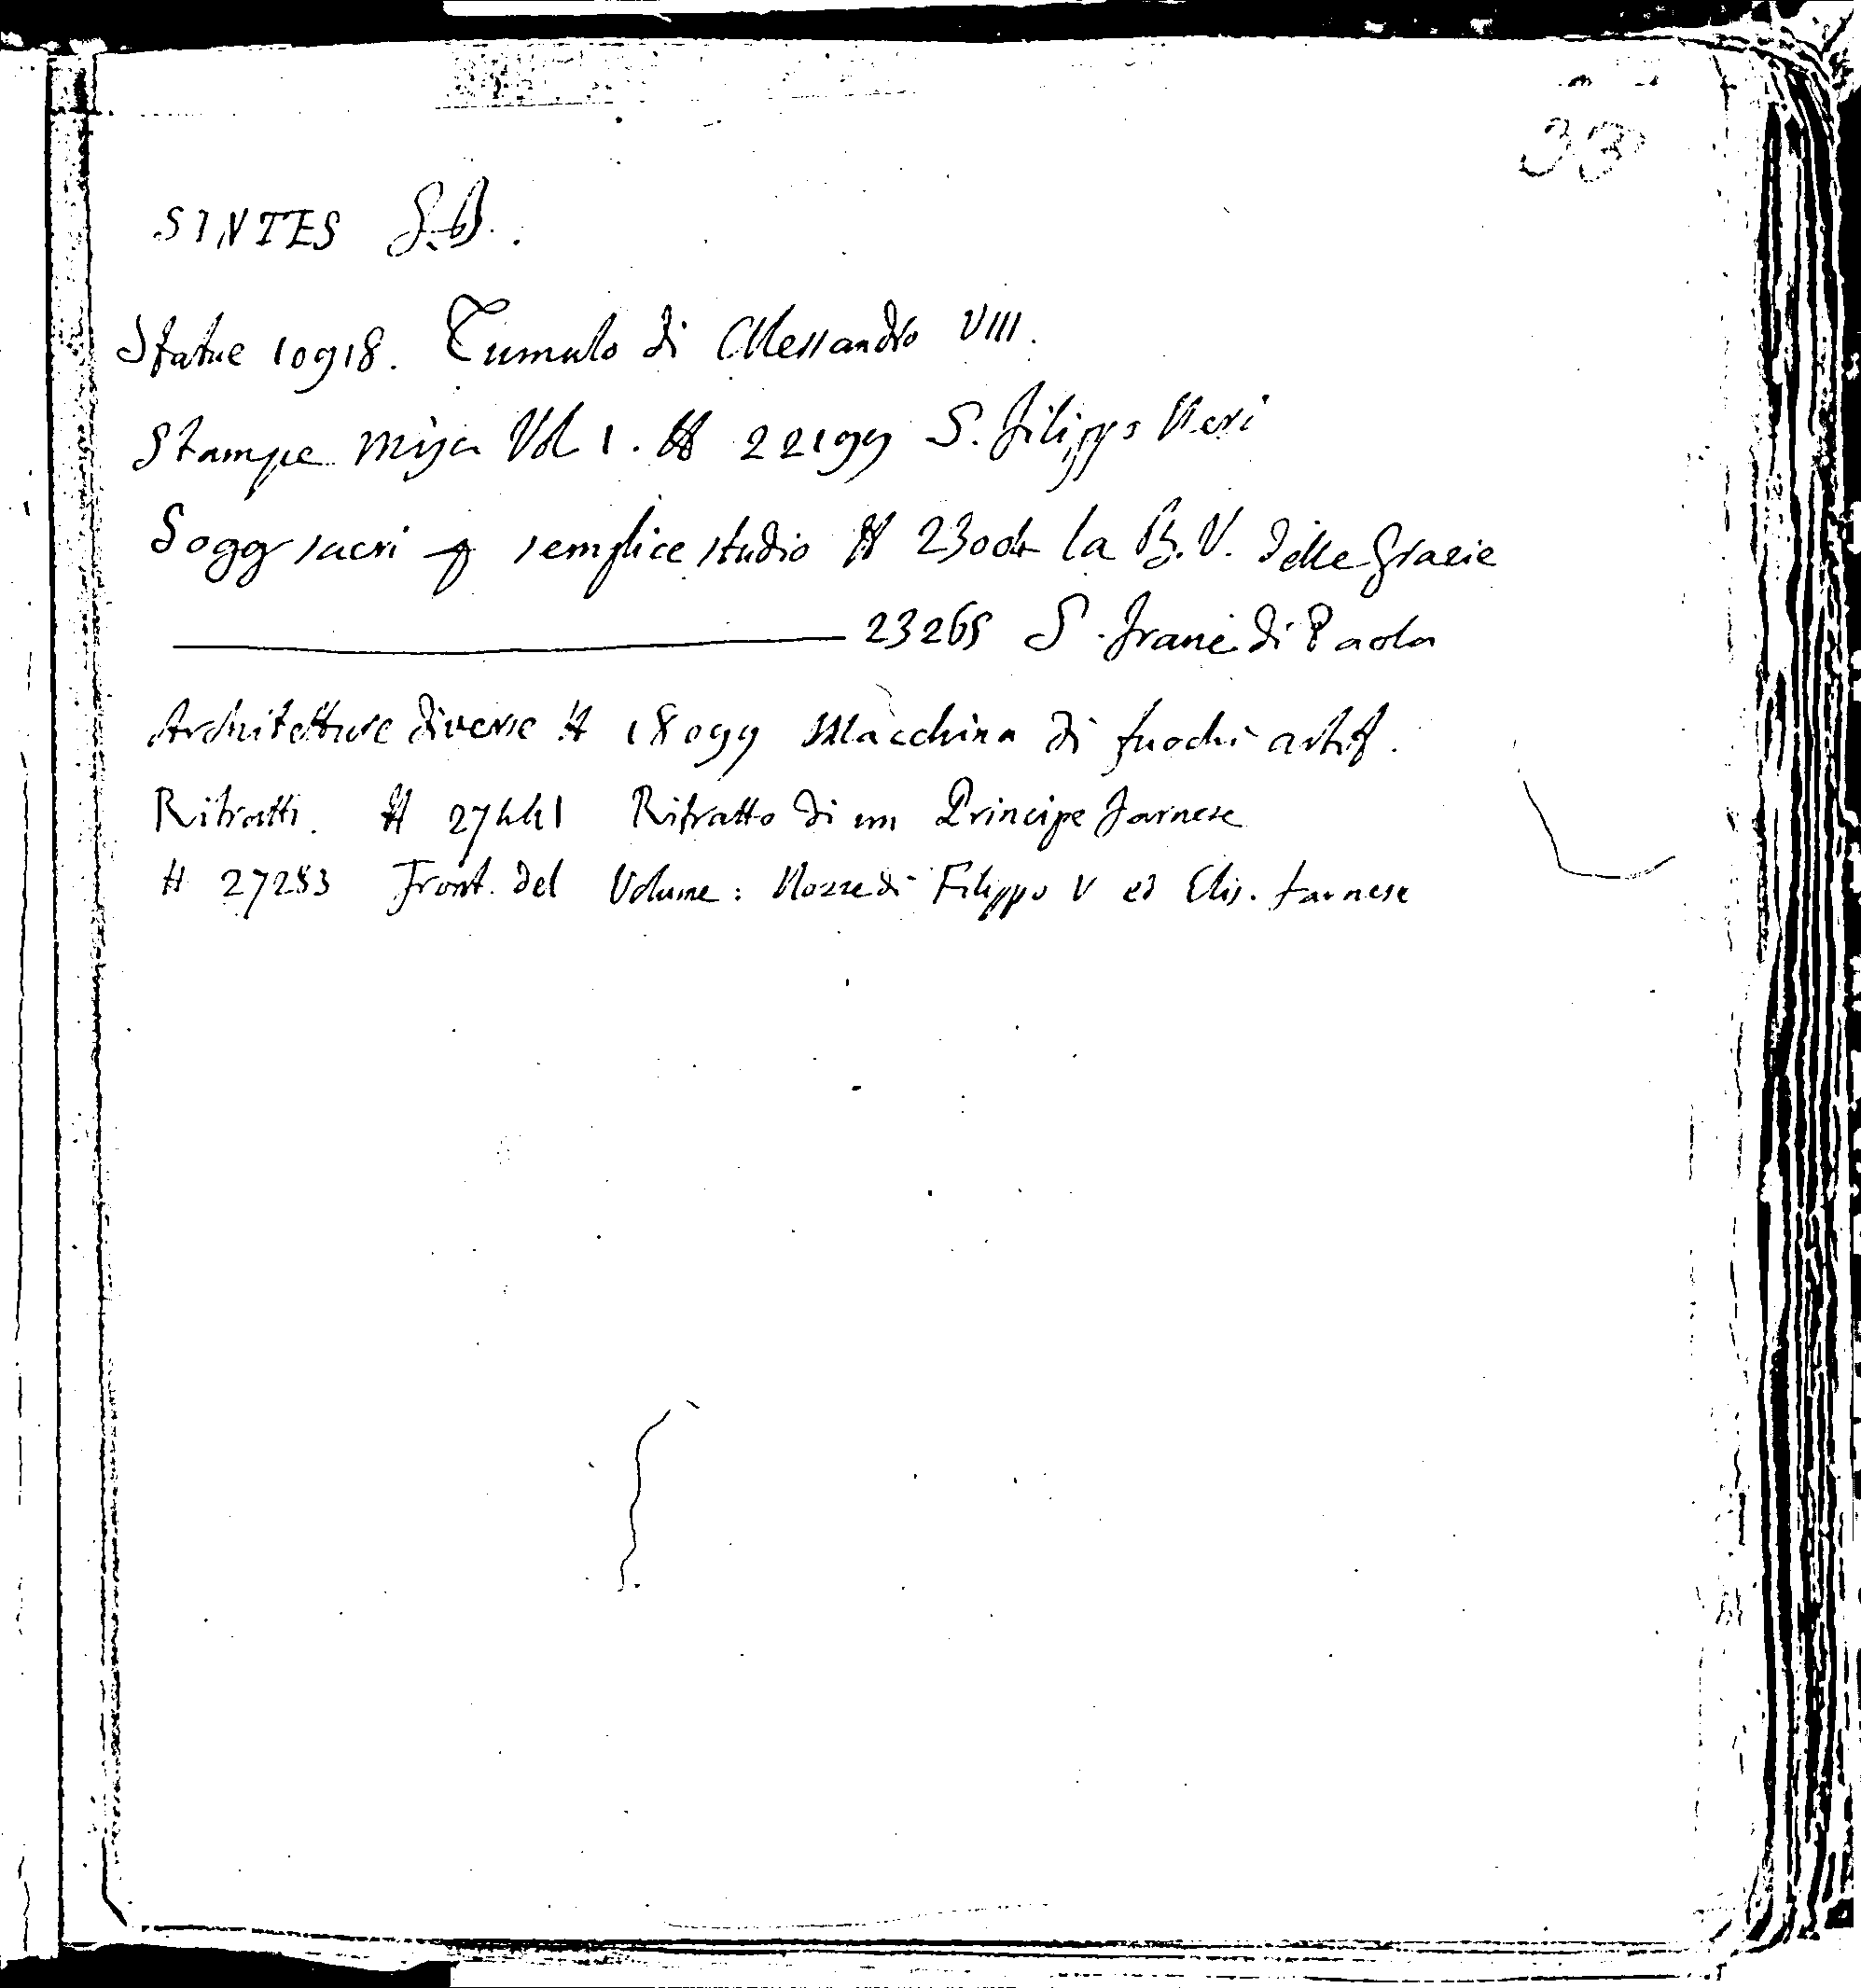 33
SINTES G.B.
Statue 10918. Tumulo di Alessandro VIII.
Stampe Misc Vol 1. # 22199 S. Filippo Neri
Sogg sacri p semplice studio # 23004 la B.V. delle Grazie
23265 S. Franc di Paola
Architetture diverse # 18099 Macchina di fuochi artif.
Ritratti. # 27441 Ritratto di un Principe Farnese
# 27283 Front. del Volume: Nozze di Filippo V ed Elis. Farnese